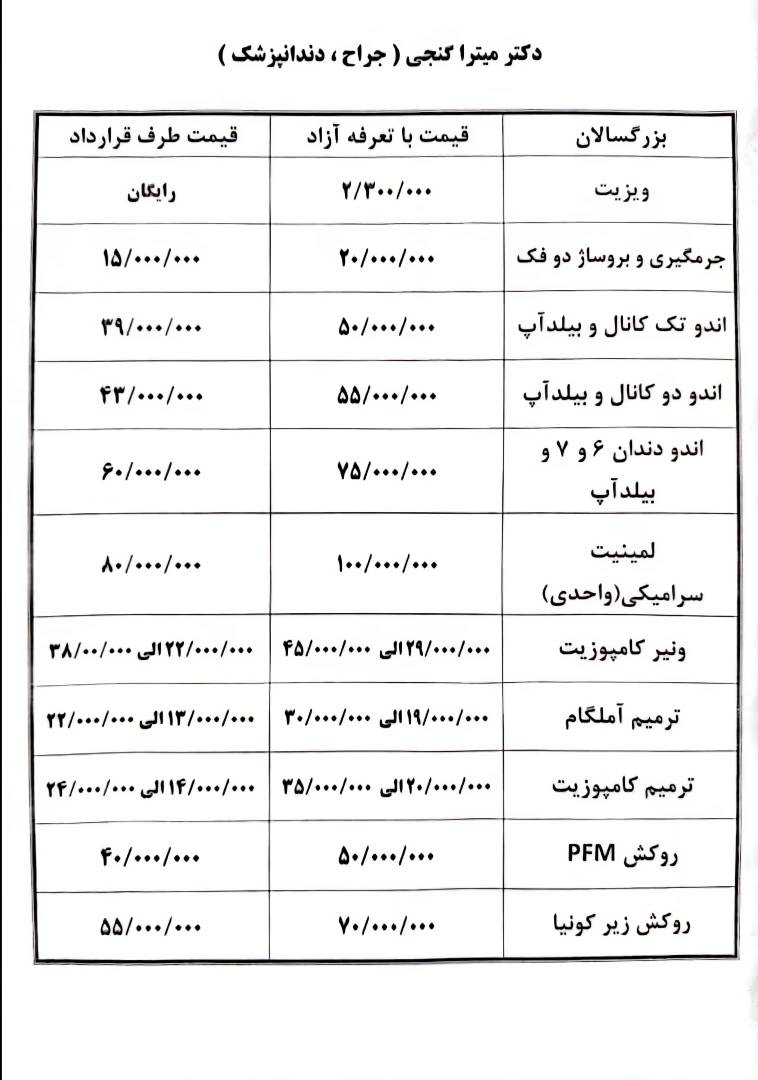 دکتر میترا گنجی ( جراح ، دندانپزشک )
بزرگسالان | قیمت با تعرفه آزاد | قیمت طرف قرارداد
ویزیت | ۲/۳۰۰/۰۰۰ | رایگان
جرمگیری و بروساژ دو فک | ۲۰/۰۰۰/۰۰۰ | ۱۵/۰۰۰/۰۰۰
اندو تک کانال و بیلدآپ | ۵۰/۰۰۰/۰۰۰ | ۳۹/۰۰۰/۰۰۰
اندو دو کانال و بیلدآپ | ۵۵/۰۰۰/۰۰۰ | ۴۳/۰۰۰/۰۰۰
اندو دندان ۶ و ۷ و
بیلدآپ | ۷۵/۰۰۰/۰۰۰ | ۶۰/۰۰۰/۰۰۰
لمینیت
سرامیکی(واحدی) | ۱۰۰/۰۰۰/۰۰۰ | ۸۰/۰۰۰/۰۰۰
ونیر کامپوزیت | ۲۹/۰۰۰/۰۰۰ الی ۴۵/۰۰۰/۰۰۰ | ۲۲/۰۰۰/۰۰۰ الی ۳۸/۰۰/۰۰۰
ترمیم آملگام | ۱۹/۰۰۰/۰۰۰ الی ۳۰/۰۰۰/۰۰۰ | ۱۳/۰۰۰/۰۰۰ الی ۲۲/۰۰۰/۰۰۰
ترمیم کامپوزیت | ۲۰/۰۰۰/۰۰۰ الی ۳۵/۰۰۰/۰۰۰ | ۱۴/۰۰۰/۰۰۰ الی ۲۴/۰۰۰/۰۰۰
روکش PFM | ۵۰/۰۰۰/۰۰۰ | ۴۰/۰۰۰/۰۰۰
روکش زیر کونیا | ۷۰/۰۰۰/۰۰۰ | ۵۵/۰۰۰/۰۰۰